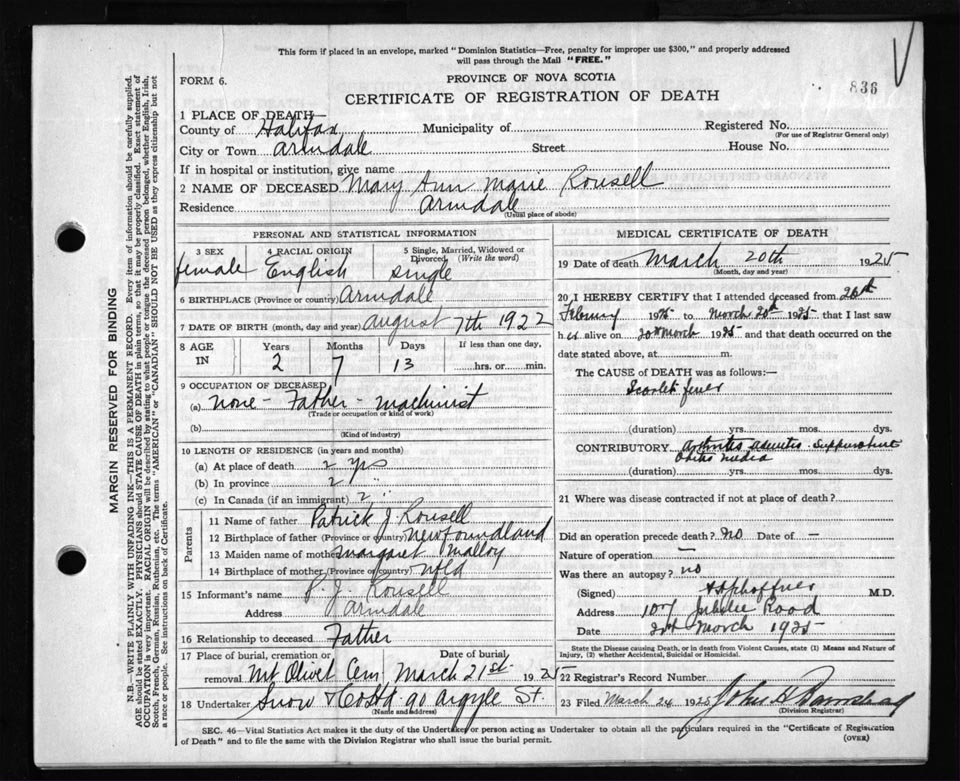 This form if placed in an envelope, marked "Dominion Statistics—Free, penalty for improper use $300," and properly addressed
will pass through the Mail "FREE."
FORM 6.
PROVINCE OF NOVA SCOTIA
836
CERTIFICATE OF REGISTRATION OF DEATH
1 PLACE OF DEATH—
County of Halifax Municipality of Registered No.
(For use of Registrar General only)
City or Town Armdale Street House No.
If in hospital or institution, give name
2 NAME OF DECEASED Mary Ann Marie Rousell
Residence Armdale
(Usual place of abode)
PERSONAL AND STATISTICAL INFORMATION
3 SEX 4 RACIAL ORIGIN 5 Single, Married, Widowed or
Divorced (Write the word)
female English single
6 BIRTHPLACE (Province or country) Armdale
7 DATE OF BIRTH (month, day and year) August 7th 1922
8 AGE IN Years Months Days If less than one day,
2 7 13 hrs. or min.
9 OCCUPATION OF DECEASED
(a) None - Father - machinist
(Trade or occupation or kind of work)
(b)
(Kind of industry)
10 LENGTH OF RESIDENCE (in years and months)
(a) At place of death 2 yrs
(b) In province 2 "
(c) In Canada (if an immigrant) 2 "
Parents
11 Name of father Patrick J Rousell
12 Birthplace of father (Province or country) Newfoundland
13 Maiden name of mother Margaret Malloy
14 Birthplace of mother (Province or country) Nfld
15 Informant's name P. J. Rousell
Address Armdale
16 Relationship to deceased Father
17 Place of burial, cremation or Date of burial
removal Mt Olivet Cem March 21st 1925
18 Undertaker Snow & Co Ltd 90 Argyle St.
(Name and address)
MEDICAL CERTIFICATE OF DEATH
19 Date of death March 20th 1925
(Month, day and year)
20 I HEREBY CERTIFY that I attended deceased from 26th
February 1925 to March 20th 1925 that I last saw
h er alive on 20th March 1925 and that death occurred on the
date stated above, at m.
The CAUSE of DEATH was as follows:—
Scarlet fever
(duration) yrs. mos. dys.
CONTRIBUTORY Arthritis Suppurative
Otitis Media
(duration) yrs. mos. dys.
21 Where was disease contracted if not at place of death?
Did an operation precede death? No Date of —
Nature of operation —
Was there an autopsy? no
(Signed) M.D.
Address 107 Jubilee Road
Date March 1925
State the Disease causing Death, or in death from Violent Causes, state (1) Means and Nature of
Injury, (2) whether Accidental, Suicidal or Homicidal.
22 Registrar's Record Number
23 Filed March 24 1925 John
(Division Registrar)
SEC. 46—Vital Statistics Act makes it the duty of the Undertaker or person acting as Undertaker to obtain all the particulars required in the "Certificate of Registration
of Death" and to file the same with the Division Registrar who shall issue the burial permit.
(OVER)
MARGIN RESERVED FOR BINDING
N.B.—WRITE PLAINLY WITH UNFADING INK—THIS IS A PERMANENT RECORD. Every item of information should be carefully supplied.
AGE should be stated EXACTLY. PHYSICIANS should STATE CAUSE OF DEATH in plain terms, so that it may be properly classified. Exact statement of
OCCUPATION is very important. RACIAL ORIGIN will be described by stating to what people or tongue the deceased person belonged, whether English, Irish,
Scotch, French, German, Russian, Ruthenian, etc. The terms "AMERICAN" or "CANADIAN" SHOULD NOT BE USED as they express citizenship but not
a race or people. See instructions on back of Certificate.